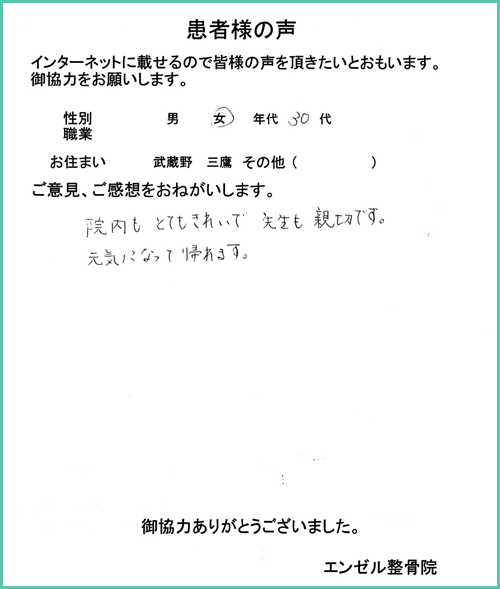 患者様の声
インターネットに載せるので皆様の声を頂きたいとおもいます。
御協力をお願いします。
性別 男 女 年代 30 代
職業
お住まい 武蔵野 三鷹 その他 ( )
ご意見、ご感想をおねがいします。
院内も とてもきれいで 先生も 親切です。
元気になって帰れます。
御協力ありがとうございました。
エンゼル整骨院